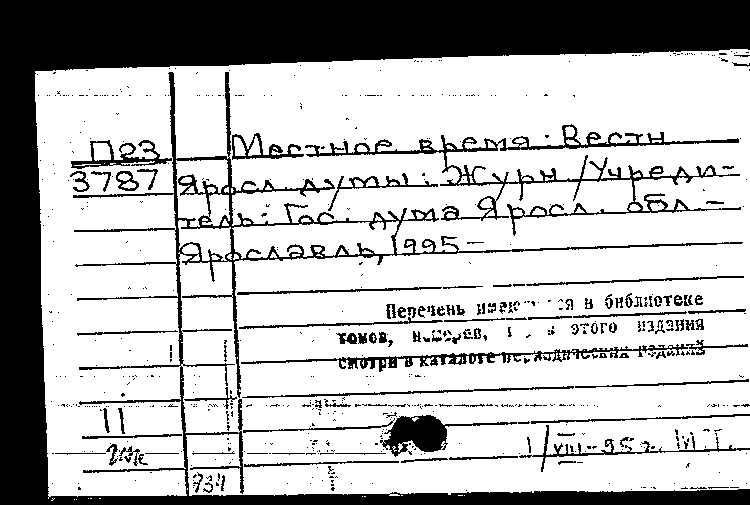 П23 Местное время: Вестн
3787 Яросл. думы: Журн/Учреди-
тель: Гос. дума Яросл. обл.-
Ярославль, 1995-
Перечень имеющихся в библиотеке
томов, номеров, этого издания
смотри в каталоге периодических изданий
11
1/VIII-95 г. М.Т.
934